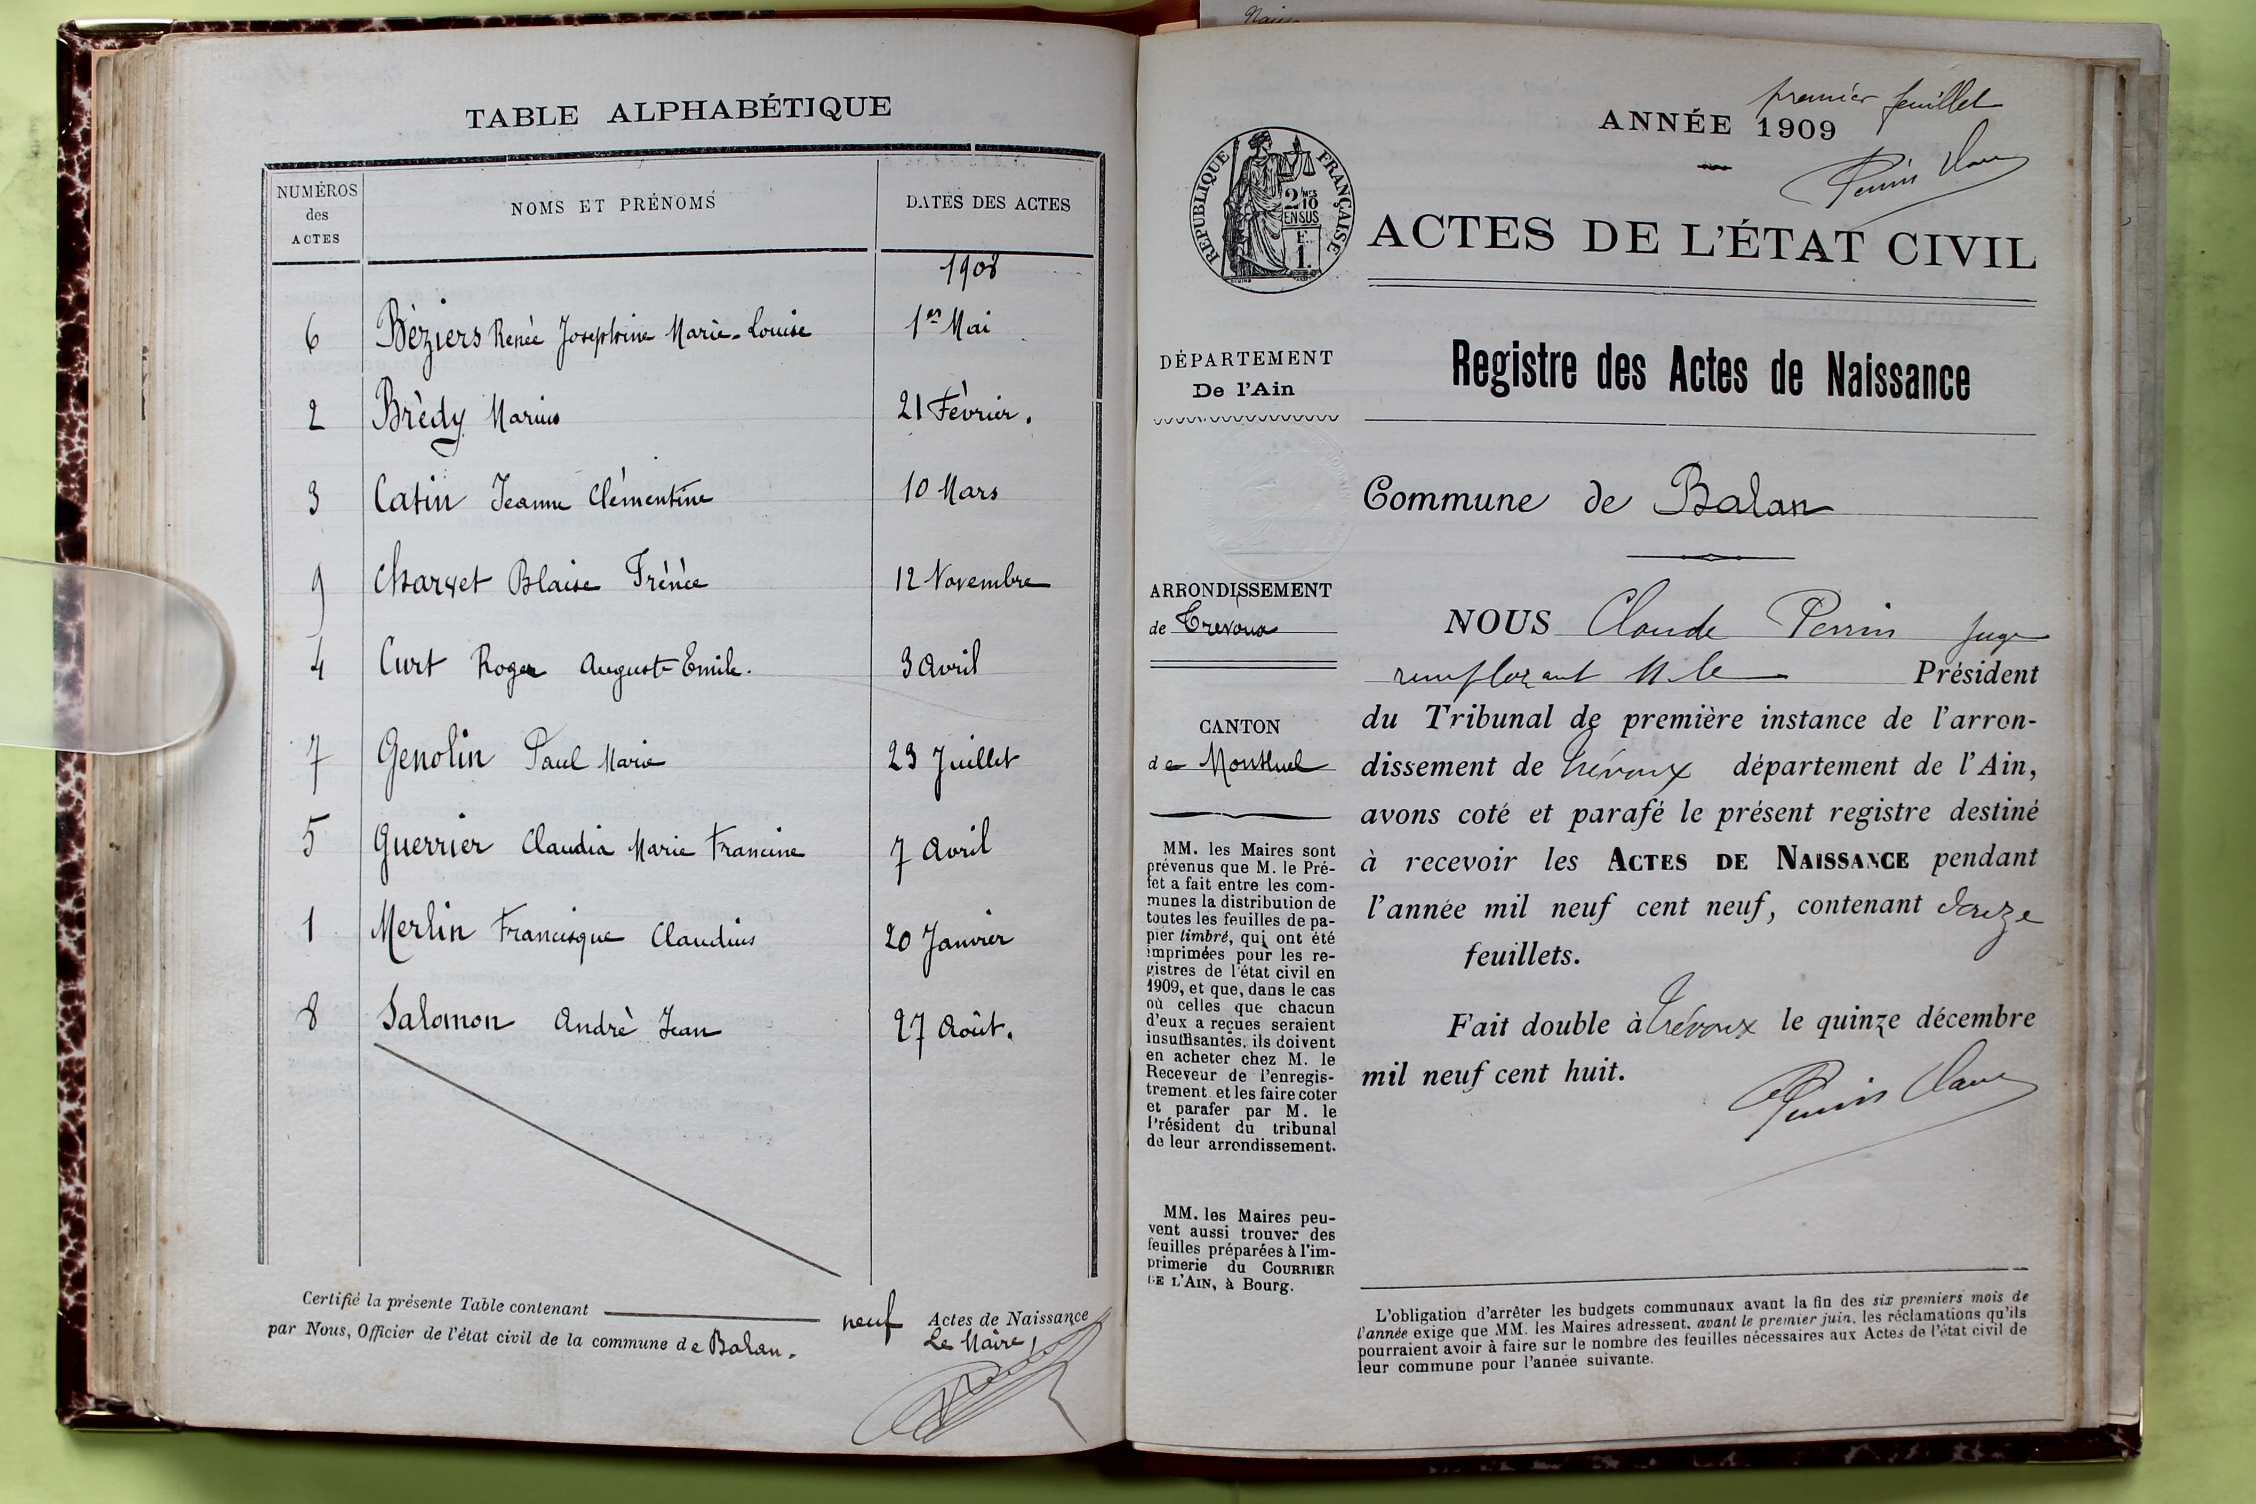 TABLE ALPHABÉTIQUE
NUMÉROS des ACTES
NOMS ET PRÉNOMS
DATES DES ACTES
1908
6 Béziers Renée Josephine Marie-Louise 1er Mai
2 Brèdy Marius 21 Février.
3 Catin Jeanne Clémentine 10 Mars
9 Charvet Blaise Irénée 12 Novembre
4 Curt Roger Auguste Emile. 3 Avril
7 Genolin Paul Marie 23 Juillet
5 Guerrier Claudia Marie Francine 7 Avril
1 Merlin Francisque Claudius 20 Janvier
8 Salomon Andrè Jean 27 Août.
Certifié la présente Table contenant neuf Actes de Naissance
par Nous, Officier de l'état civil de la commune de Balan.
Le Maire,
premier feuillet
ANNÉE 1909
RÉPUBLIQUE FRANÇAISE
2/10 MES
EN SUS
1.
ACTES DE L'ÉTAT CIVIL
DÉPARTEMENT
De l'Ain
Registre des Actes de Naissance
Commune de Balan
ARRONDISSEMENT
de Trevoux
CANTON
de Montluel
MM. les Maires sont
prévenus que M. le Pré-
fet a fait entre les com-
munes la distribution de
toutes les feuilles de pa-
pier timbré, qui ont été
imprimées pour les re-
gistres de l'état civil en
1909, et que, dans le cas
où celles que chacun
d'eux a reçues seraient
insuffisantes, ils doivent
en acheter chez M. le
Receveur de l'enregis-
trement et les faire coter
et parafer par M. le
Président du tribunal
de leur arrondissement.
MM. les Maires peu-
vent aussi trouver des
feuilles préparées à l'im-
primerie du COURRIER
DE L'AIN, à Bourg.
NOUS Claude Perrin Juge
remplaçant M. le Président
du Tribunal de première instance de l'arron-
dissement de Trévoux département de l'Ain,
avons coté et parafé le présent registre destiné
à recevoir les ACTES DE NAISSANCE pendant
l'année mil neuf cent neuf, contenant douze
feuillets.
Fait double à Trévoux le quinze décembre
mil neuf cent huit.
L'obligation d'arrêter les budgets communaux avant la fin des six premiers mois de
l'année exige que MM. les Maires adressent, avant le premier juin, les réclamations qu'ils
pourraient avoir à faire sur le nombre des feuilles nécessaires aux Actes de l'état civil de
leur commune pour l'année suivante.